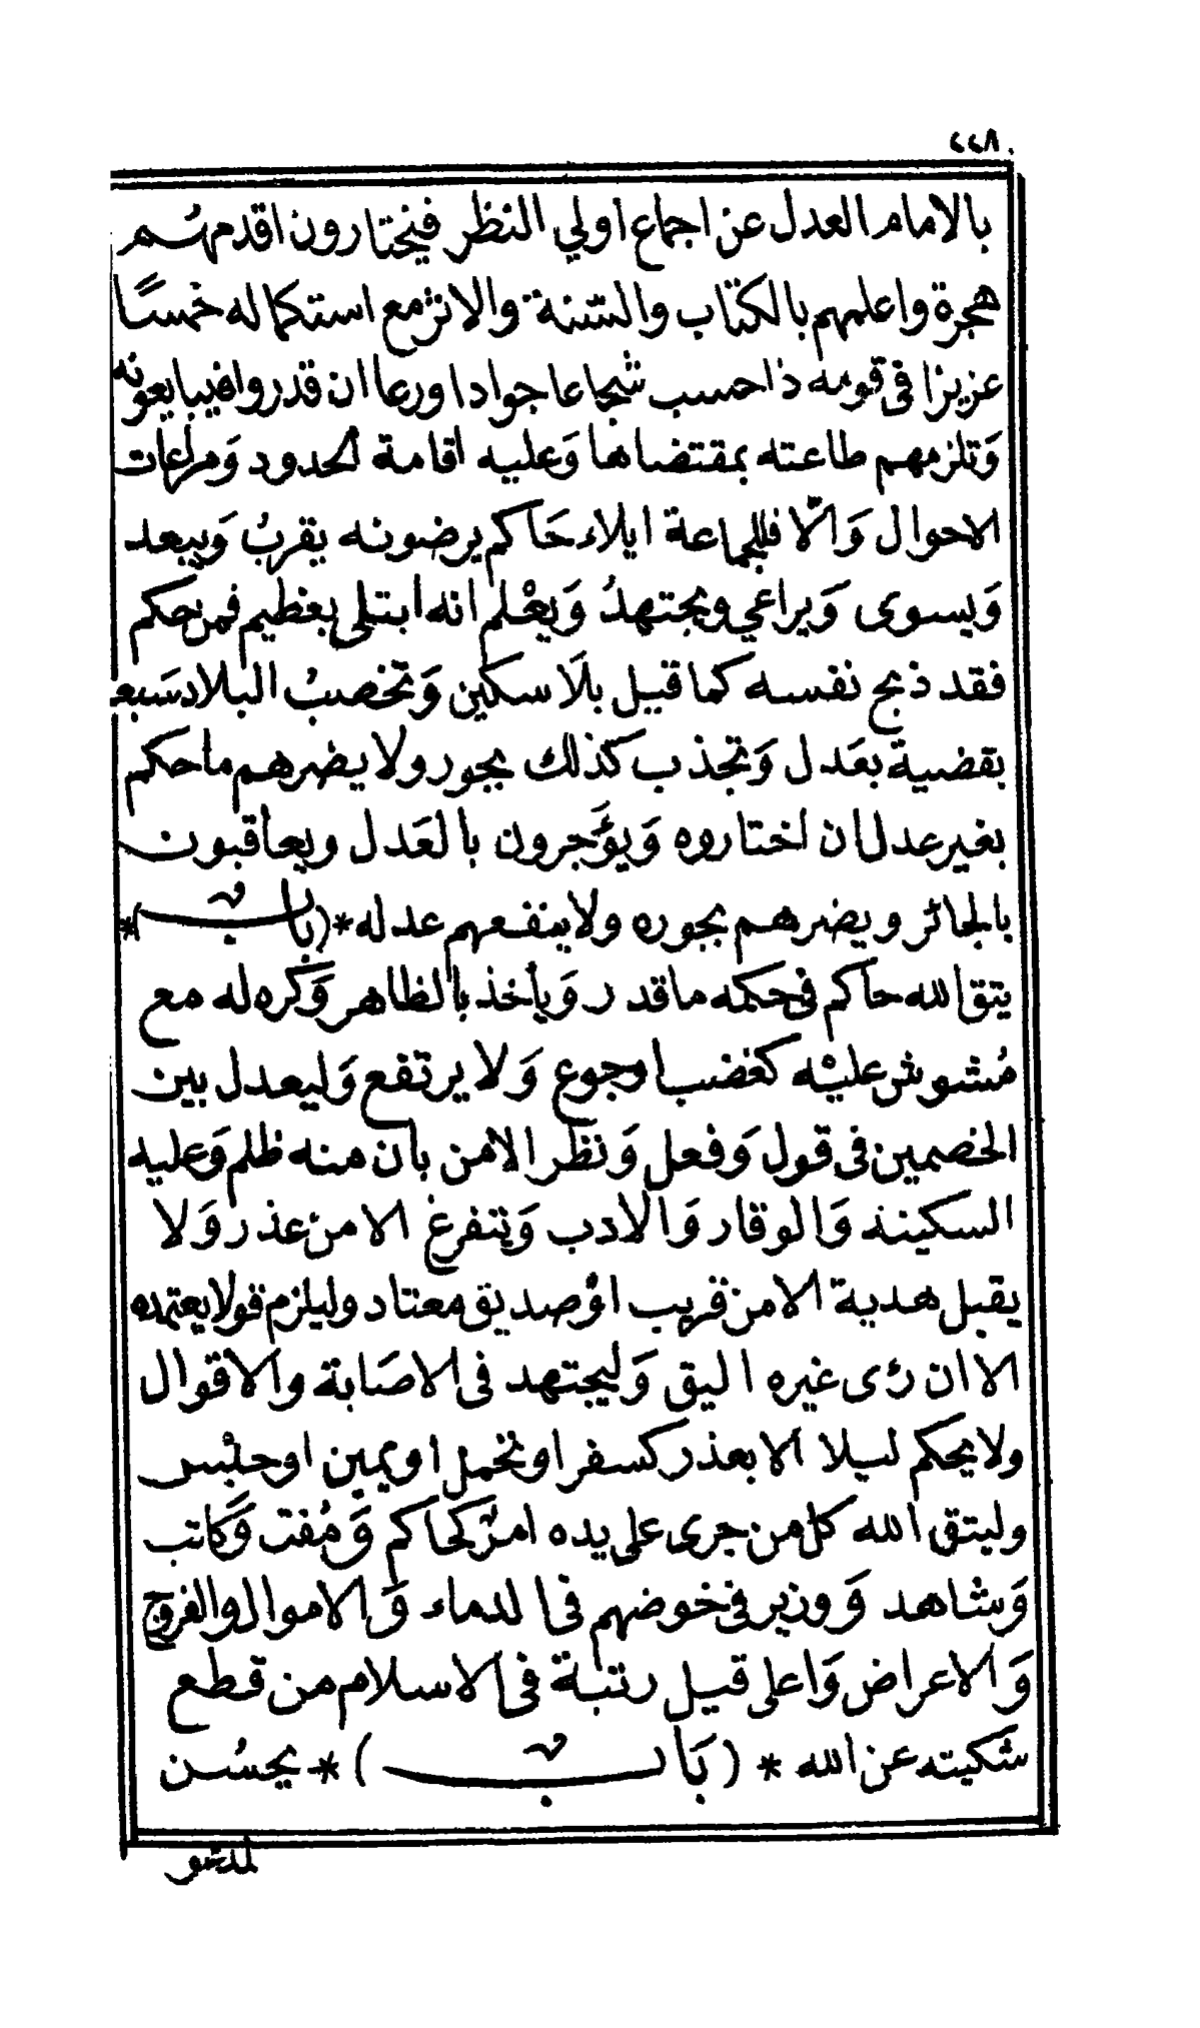 ٢٢٨.
بالامام العدل عن اجماع اولي النظر فيختارون اقدمهُم
هجرة واعلمهم بالكتاب والسّنة والاثر مع استكماله خمسًا
عزيزا فى قومه ذا حسب شجاعا جوادا ورعا ان قدروا فيبايعونه
وَتلزمهم طاعته بمقتضاها وَعليه اقامة الحدود وَمراعات
الاحوال وَالّا فللجماعة ايلاء حَاكم يرضونه يقربُ وَيبعد
وَيسوى وَيراعي ويجتهدُ وَيعْلم انه ابتلى بعظيم فمن حكم
فقد ذبح نفسه كما قيل بلَا سكين وَتخصبُ البلاد سَبعا
بقضية بعَدل وَتجذب كذلك بجور ولا يضرهم ما حكم
بغير عدل ان اختاروه وَيؤَجرون بالعَدل ويعاقبون
بالجائر ويضرهم بجوره ولا ينفعهم عدله *(باب)*
يتق الله حاكم فى حكمه ما قدر وَيأخذ بالظاهر وَكره له مع
مُشوش عليْه كغضب اوجوع وَلا يرتفع وَليعدل بين
الخصمين فى قول وَفعل وَنظر الا من بان منه ظلم وَعليه
السكينة وَالوقار وَالادب وَيتفرغ الا من عذر وَلا
يقبل هدية الا من قريب اوْصديق معتاد وليلزم قولا يعتمده
الا ان رءى غيره اليق وَليجتهد فى الاصَابة والاقوال
ولا يحكم ليلا الا بعذر كسفر او تحمل او يمين او حبْس
وليتق الله كل من جرى على يده امرٌ كحاكم وَمُفت وَكاتب
وَشاهد وَوزير فى خوضهم فى الدماء وَالاموال والفروج
وَالاعراض وَاعلى قيل رتبة فى الاسلام من قطع
شكيته عن الله * (بَاب) * يحسُن